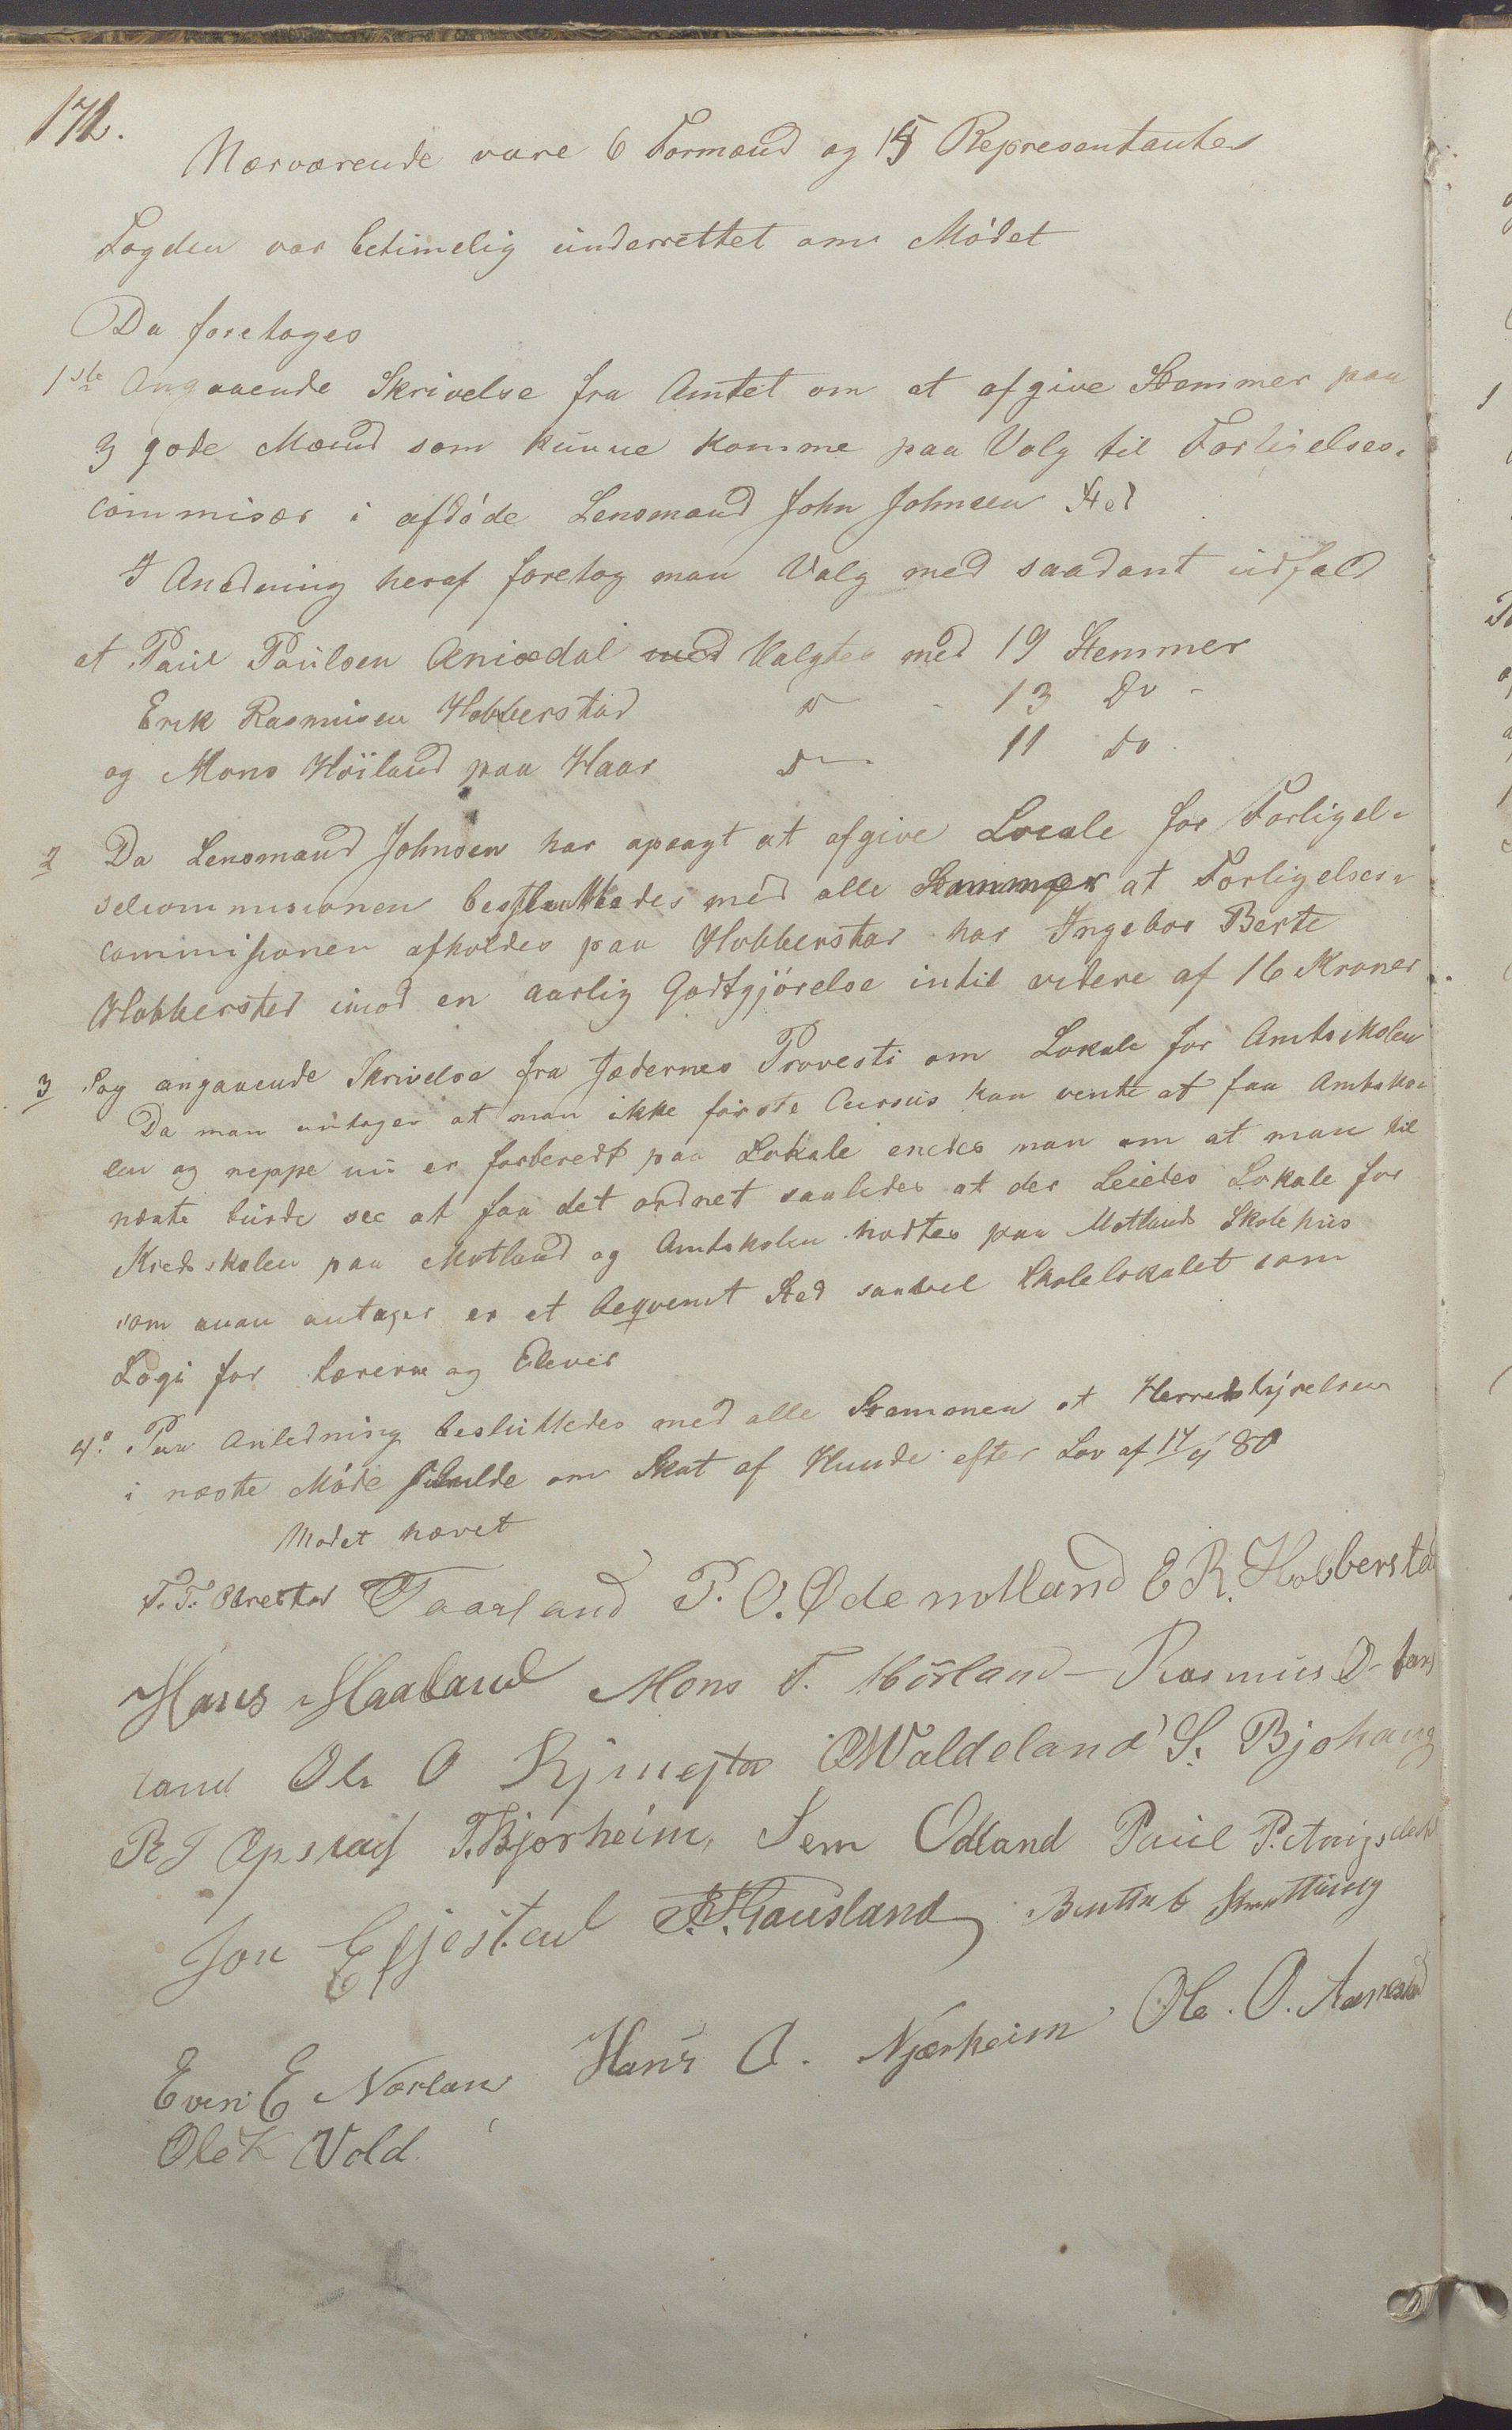 172.
Nærværende vare 6 Formænd og 15 Representanter
Fogden var betimelig underrettet om Mödet
Da foretoges
1ste Angaaende Skrivelse fra Amtet om at afgive Stemmer paa
3 gode Mænd som kunne komme paa Valg til Forligelses-
commisær i afdöde Lensmand John Johnsen Sted
I Anedning heraf foretog man Valg med saadant udfald
at Paul Paulsen Anisdal med Valgtes med 19 Stemmer
Erik Rasmusen Hobberstad D 13 Do
og Mons Höiland paa Haar D 11 Do
2 Da Lensmand Johnsen har opsagt at afgive Locale for Forligel-
selcommisionen besluttedes med alle Stemmer at Forligelses-
commissionen afholdes paa Hobberstad hos Ingebor Berte
Hobbersted imod en aarlig Godtgjörelse intil videre af 16 Kroner
3 Sag angaaende Skrivelse fra Jædernes Provesti om Lokale for Amtsskolen
Da man antager at man ikke förste Cursus kan vente at faa Amtsko-
len og neppe nu er forberedt paa Lokale enedes man om at man til
næste burde see at faa det ordnet saaledes at der Leiedes Lokale for
Kredsskolen paa Motland og Amtskolen holdtes paa Motlands Skolehus
som man antager er et beqvemt Sted saavel Skolelokalet som
Logi for Lærerne og Elever
4º Paa Anledning besluttedes med alle Stemmer at Herredstyrelsen
i næste Möde skulde om Skat af Hunde efter Lov af 17/4 80
Mödet hævet
T. T. Obrestad Taarland P. O. Ødemotland E R. Hobberstad
Hans Haaland Mons T. Höiland Rasmus O
land Ole O OWaldeland S. Bjohaug
R J Opstad T. Bjorheim, Sem Odland Paul P.
Jon Efjestad Gausland
Even E Nærland Hans A. Njærheim Ole. O. Aarrestad
Ole K Vold